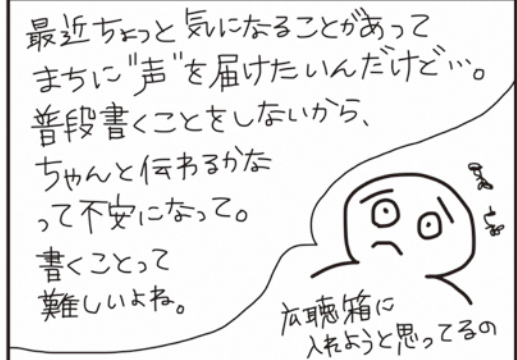 最近ちょっと気になることがあって
まちに"声"を届けたいんだけど…。
普段書くことをしないから、
ちゃんと伝わるかな
って不安になって。
書くことって
難しいよね。
広聴箱に
入れようと思ってるの